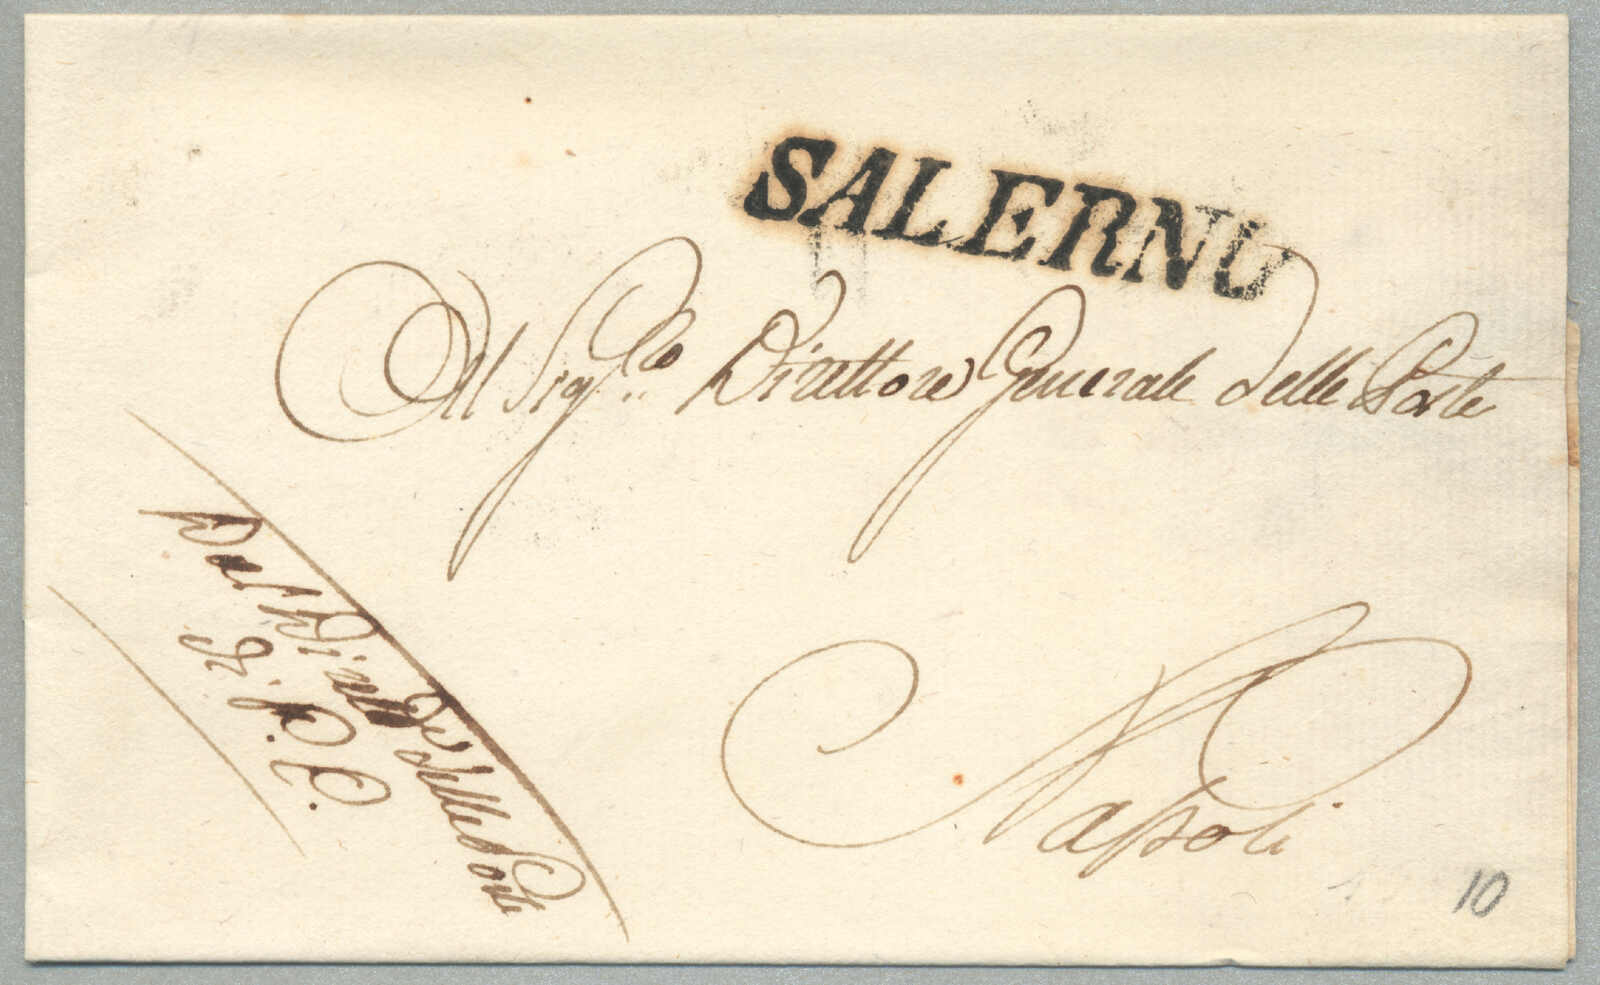 SALERNO
Al Sig.re Direttore Generale delle Poste
Napoli
Dal Dirett.e delle Poste
di P. C.
10